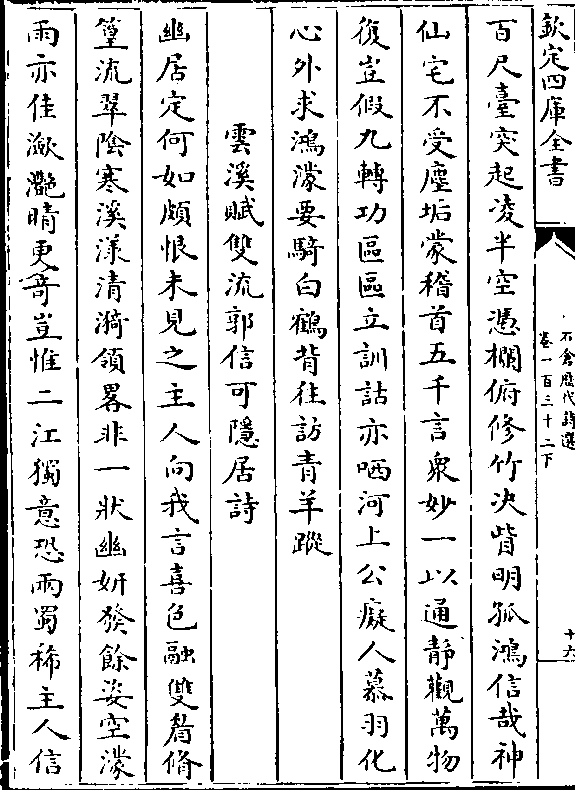 欽定四庫全書
石倉歴代詩選
卷一百三十二下
十六
百尺臺突起凌半空憑欄俯修竹决眥明孤鴻信哉神
仙宅不受塵垢蒙稽首五千言衆妙一以通靜觀萬物
復豈假九轉功區區立訓詁亦哂河上公癡人慕羽化
心外求鴻濛要騎白鶴背往訪青羊蹤
雲溪賦雙流郭信可隱居詩
幽居定何如頗恨未見之主人向我言喜色融雙眉脩
篁流翠陰寒溪漾清漪領畧非一狀幽妍發餘姿空濛
雨亦佳瀲灧晴更竒豈惟二江獨意恐兩蜀稀主人信